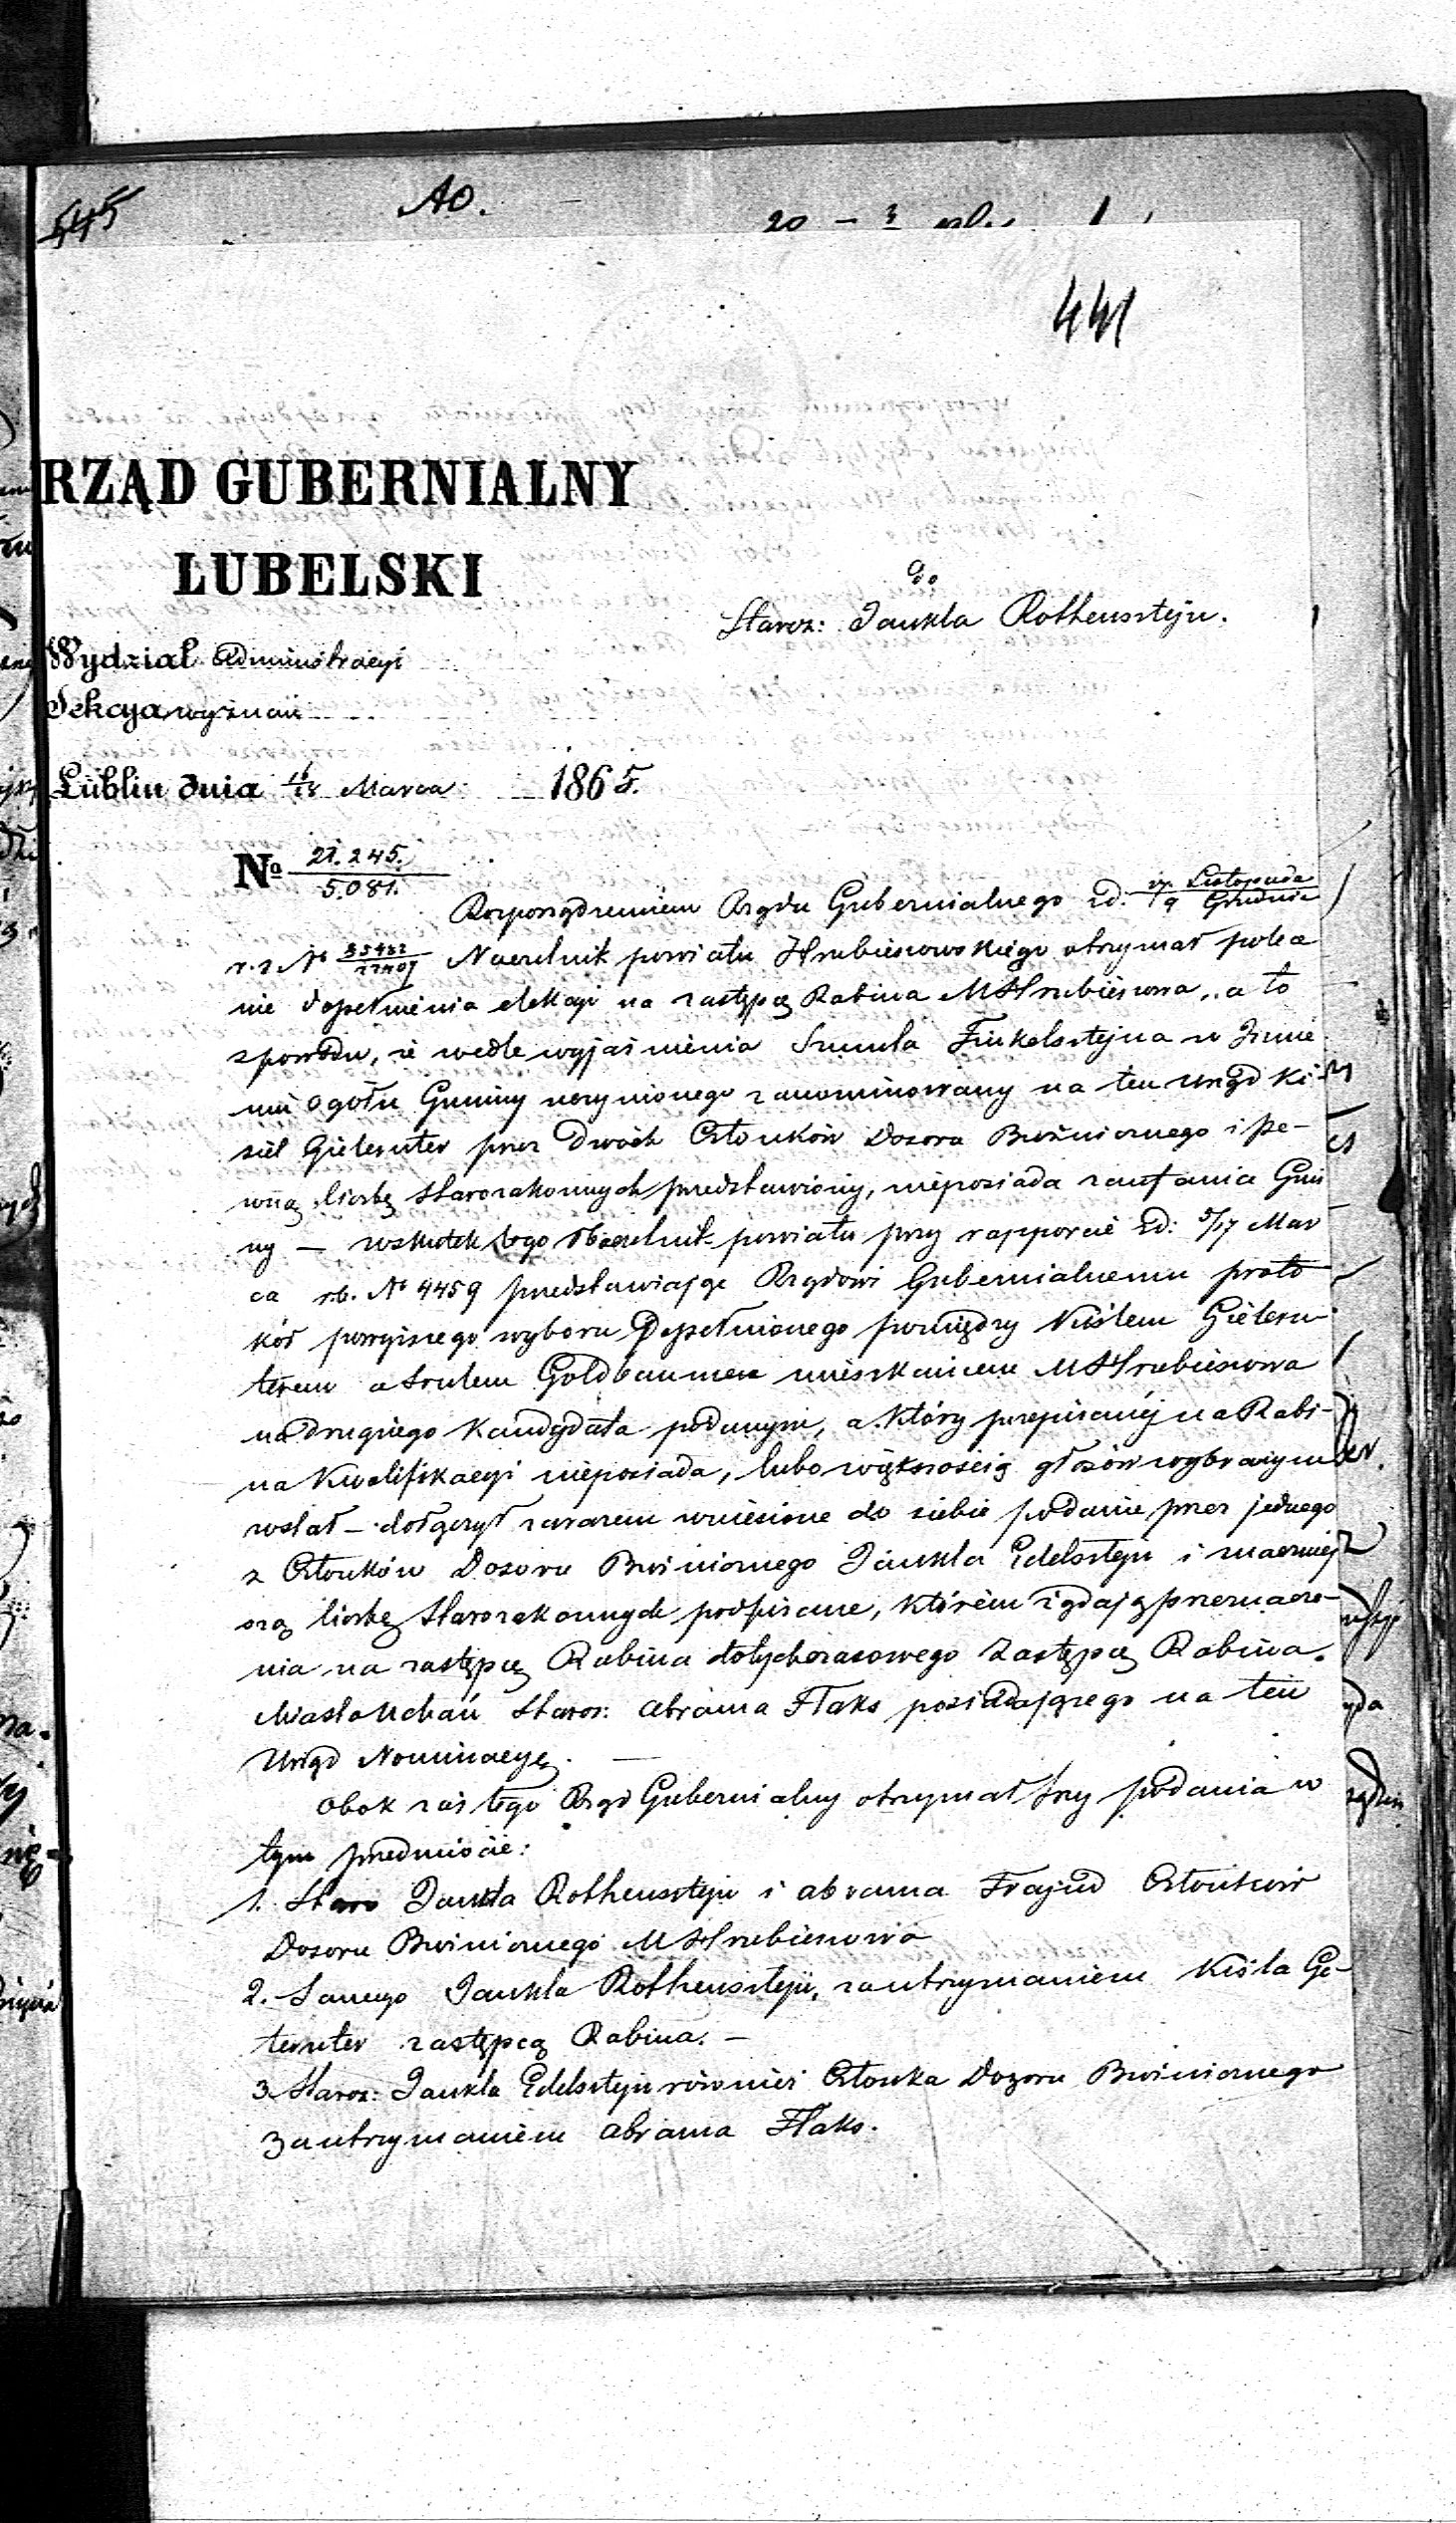 545
AO.
20 – 3
1
441
RZĄD GUBERNIALNY
LUBELSKI
do
Staroz: Jankla Rothensztejn.
Wydział Administracyi
Sekcya wyznań
Lublin dnia Marca 1865.
No 21.245.
5.081.
Rozporządzeniem Rządu Gubernialnego zd: 27 Listopada
9 Grudnia
r. z No Naczelnik powiatu Hrubieszowskiego otrzymał polece
nie dopełnienia elekcyi na zastępcę Rabina M Hrubieszowa, a to
z powodu, że wedle wyjaśnienia Szmula Finkelsztejna w Imie
niu ogółu Gminy uczynionego zanominowany na ten urząd Ki
siel Gielernter przez dwóch Członków Dozoru Bożniczego i pe-
wną liczbę starozakonnych przedstawiony, nieposiada zaufania Gmi
ny — wskutek tego Naczelnik powiatu przy rapporcie zd: 5/17 Mar
ca rb. No 4459 przedstawiając Rządowi Gubernialnemu proto
kół powyższego wyboru dopełnionego pomiędzy Kiślem Gielern
terem a Srulem Goldbaumem mieszkańcem M Hrubieszowa
na drugiego Kandydata podanym, a który przepisanéj na Rabi-
na Kwalifikacyi nieposiada, lubo większością głosów wybranym
został – dołączył zarazem wniesione do siebie podanie przez jednego
z Członków Dozoru Bożniczego Jankla Edelsztejn i znaczniej
szą liczbę starozakonnych podpisane, którém żądają przeznacze-
nia na zastępcę Rabina dotychczasowego Zastępcę Rabina
Miasta Uchań Staroz: Abrama Flaks posiadającego na ten
Urząd Nominacyę. —
Obok zaś tego Rząd Gubernialny otrzymał trzy podania w
tym przedmiocie:
1. Staro Jankla Rothensztejn i Abrama Frajnd Członków
Dozoru Bożniczego M Hrubieszowa
2. Samego Jankla Rothensztejn, za utrzymaniem Kiśla Ge-
lernter zastępcą Rabina. –
3. Staroz: Jankla Edelsztejn również Członka Dozoru Bożniczego
za utrzymaniem Abrama Flaks.